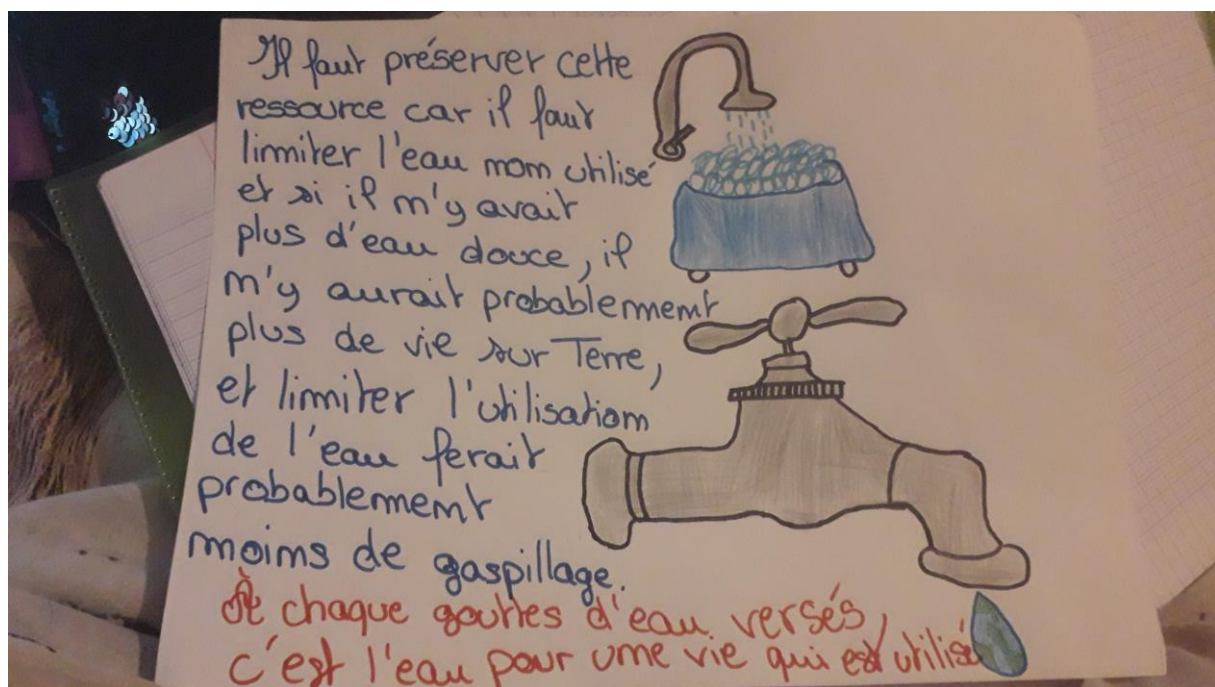 Il faut préserver cette
ressource car il faut
limiter l'eau non utilisé
et si il n'y avait
plus d'eau douce, il
n'y aurait probablement
plus de vie sur Terre,
et limiter l'utilisation
de l'eau ferait
probablement
moins de gaspillage.
À chaque gouttes d'eau versés,
c'est l'eau pour une vie qui est utilisé